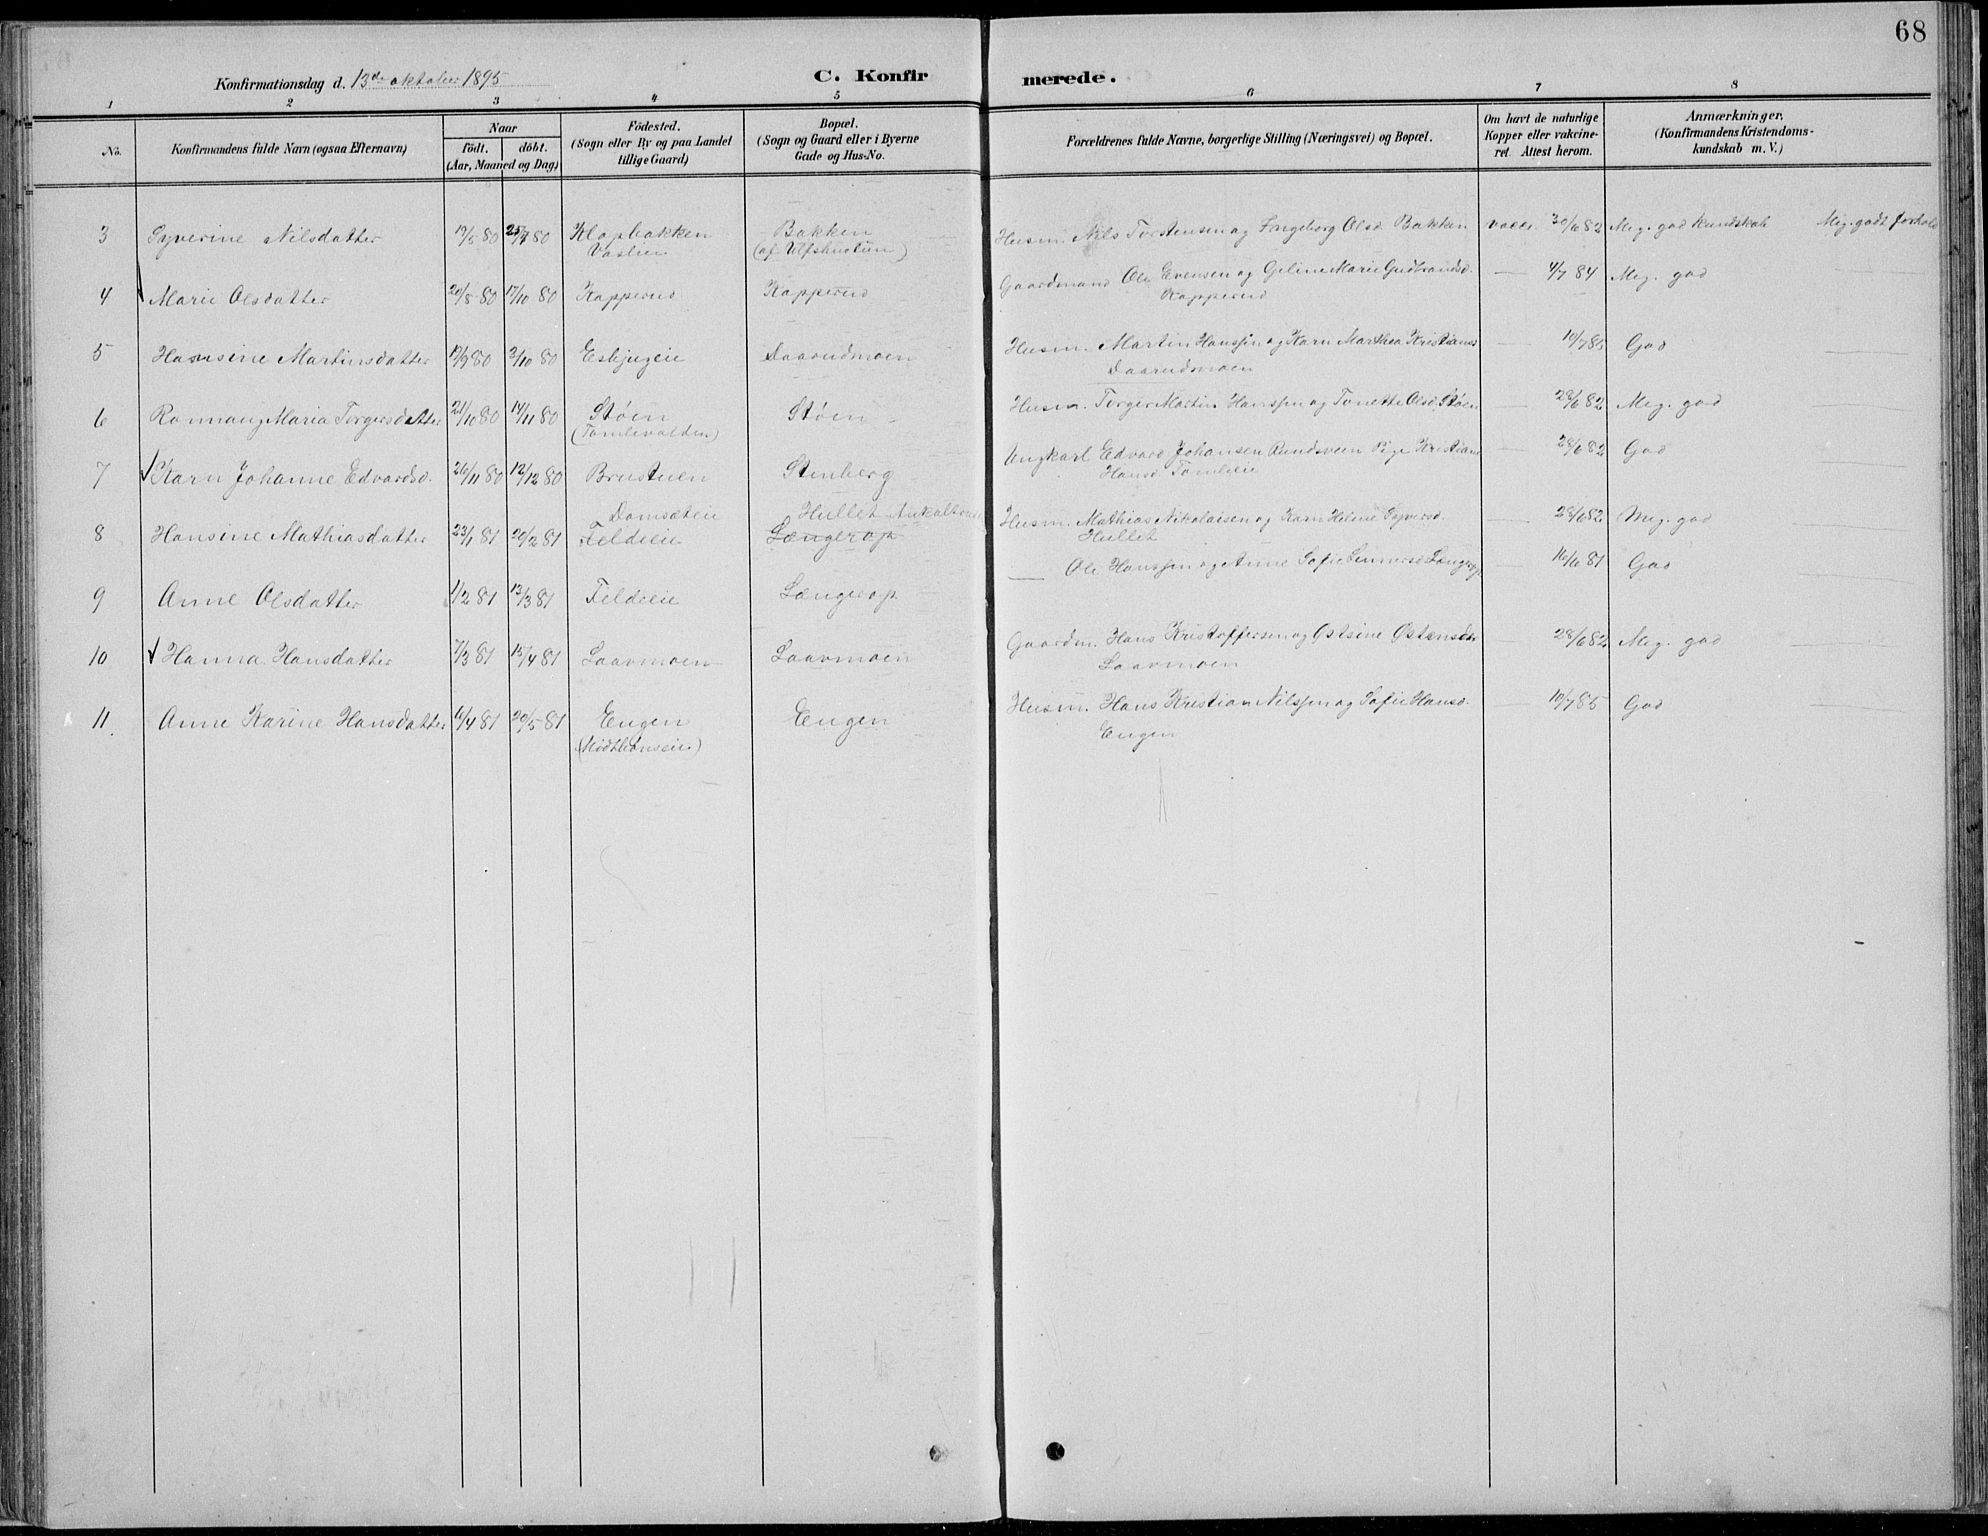 68
Konfirmationsdag d. 13de oktober 1895
C. Konfirmerede.
1 2 3 4 5 6 7 8
No.
Konfirmandens fulde Navn (ogsaa Efternavn)
Naar
født. døbt.
(Aar, Maaned og Dag)
Fødested.
(Sogn eller By og paa Landet
tillige Gaard)
Bopæl.
(Sogn og Gaard eller i Byerne
Gade og Hus-No.
Forældrenes fulde Navne, borgerlige Stilling (Næringsvei) og Bopæl.
Om havt de naturlige
Kopper eller vakcine-
ret. Attest herom.
Anmærkninger.
(Konfirmandens Kristendoms-
kundskab m. V.)
3 Syverine Nilsdatter 19/5 80 25/7 80 Klopbakken Bakken Husm. Nils Torstensen og Ingeborg Olsd. Bakken vacc. 30/6 82 Meg. god kundskab Meg. godt forhold
Vaslien (af Ulfshustuen)
4 Marie Olsdatter 20/8 80 17/10 80 Kapperud Kapperud Gaardmand Ole Evensen og Geline Marie Gudbrandsd. — 4/7 84 Meg. god
Kapperud
5 Hansine Martinsdatter 19/9 80 3/10 80 Eskjugeie Daarudmoen Husm. Martin Hanssen og Karn Marthea Kristiansd. — 10/7 85 God
Daarudmoen
6 Rønnaug Maria Torgersdatter 21/10 80 14/11 80 Støen Støen Husm. Torger Martin Hanssen og Tonette Olsd. Støen — 28/6 82 Meg. god
(Tomlevolden)
7 Karn Johanne Edvardsd. 26/11 80 12/12 80 Brustuen Stenberg Ungkarl Edvard Johansen Rundsveen Pige Kristiane — 28/6 82 God
Hansd. Tomleeie
8 Hansine Mathiasdatter 23/1 81 20/2 81 Feldeie Længerop Husm. Mathias Nikolaisen og Karn Helene Syversd. — 28/6 82 Meg. god
Domsæteie Hullet
Hullet
9 Anne Olsdatter 1/2 81 13/3 81 Feldeie Længerop — Ole Hanssen og Anne Sofie Linnersd. Længerop 16/6 81 God
10 Hanna Hansdatter 7/3 81 15/4 81 Laavmoen Laavmoen Gaardm. Hans Kristoffersen og Ostsine Ostensdtr — 28/6 82 Meg. god
Laavmoen
11 Anne Karine Hansdatter 16/4 81 20/5 81 Engen Engen Husm. Hans Kristian Nilssen og Sofie Hansd. — 10/7 85 God
Engen